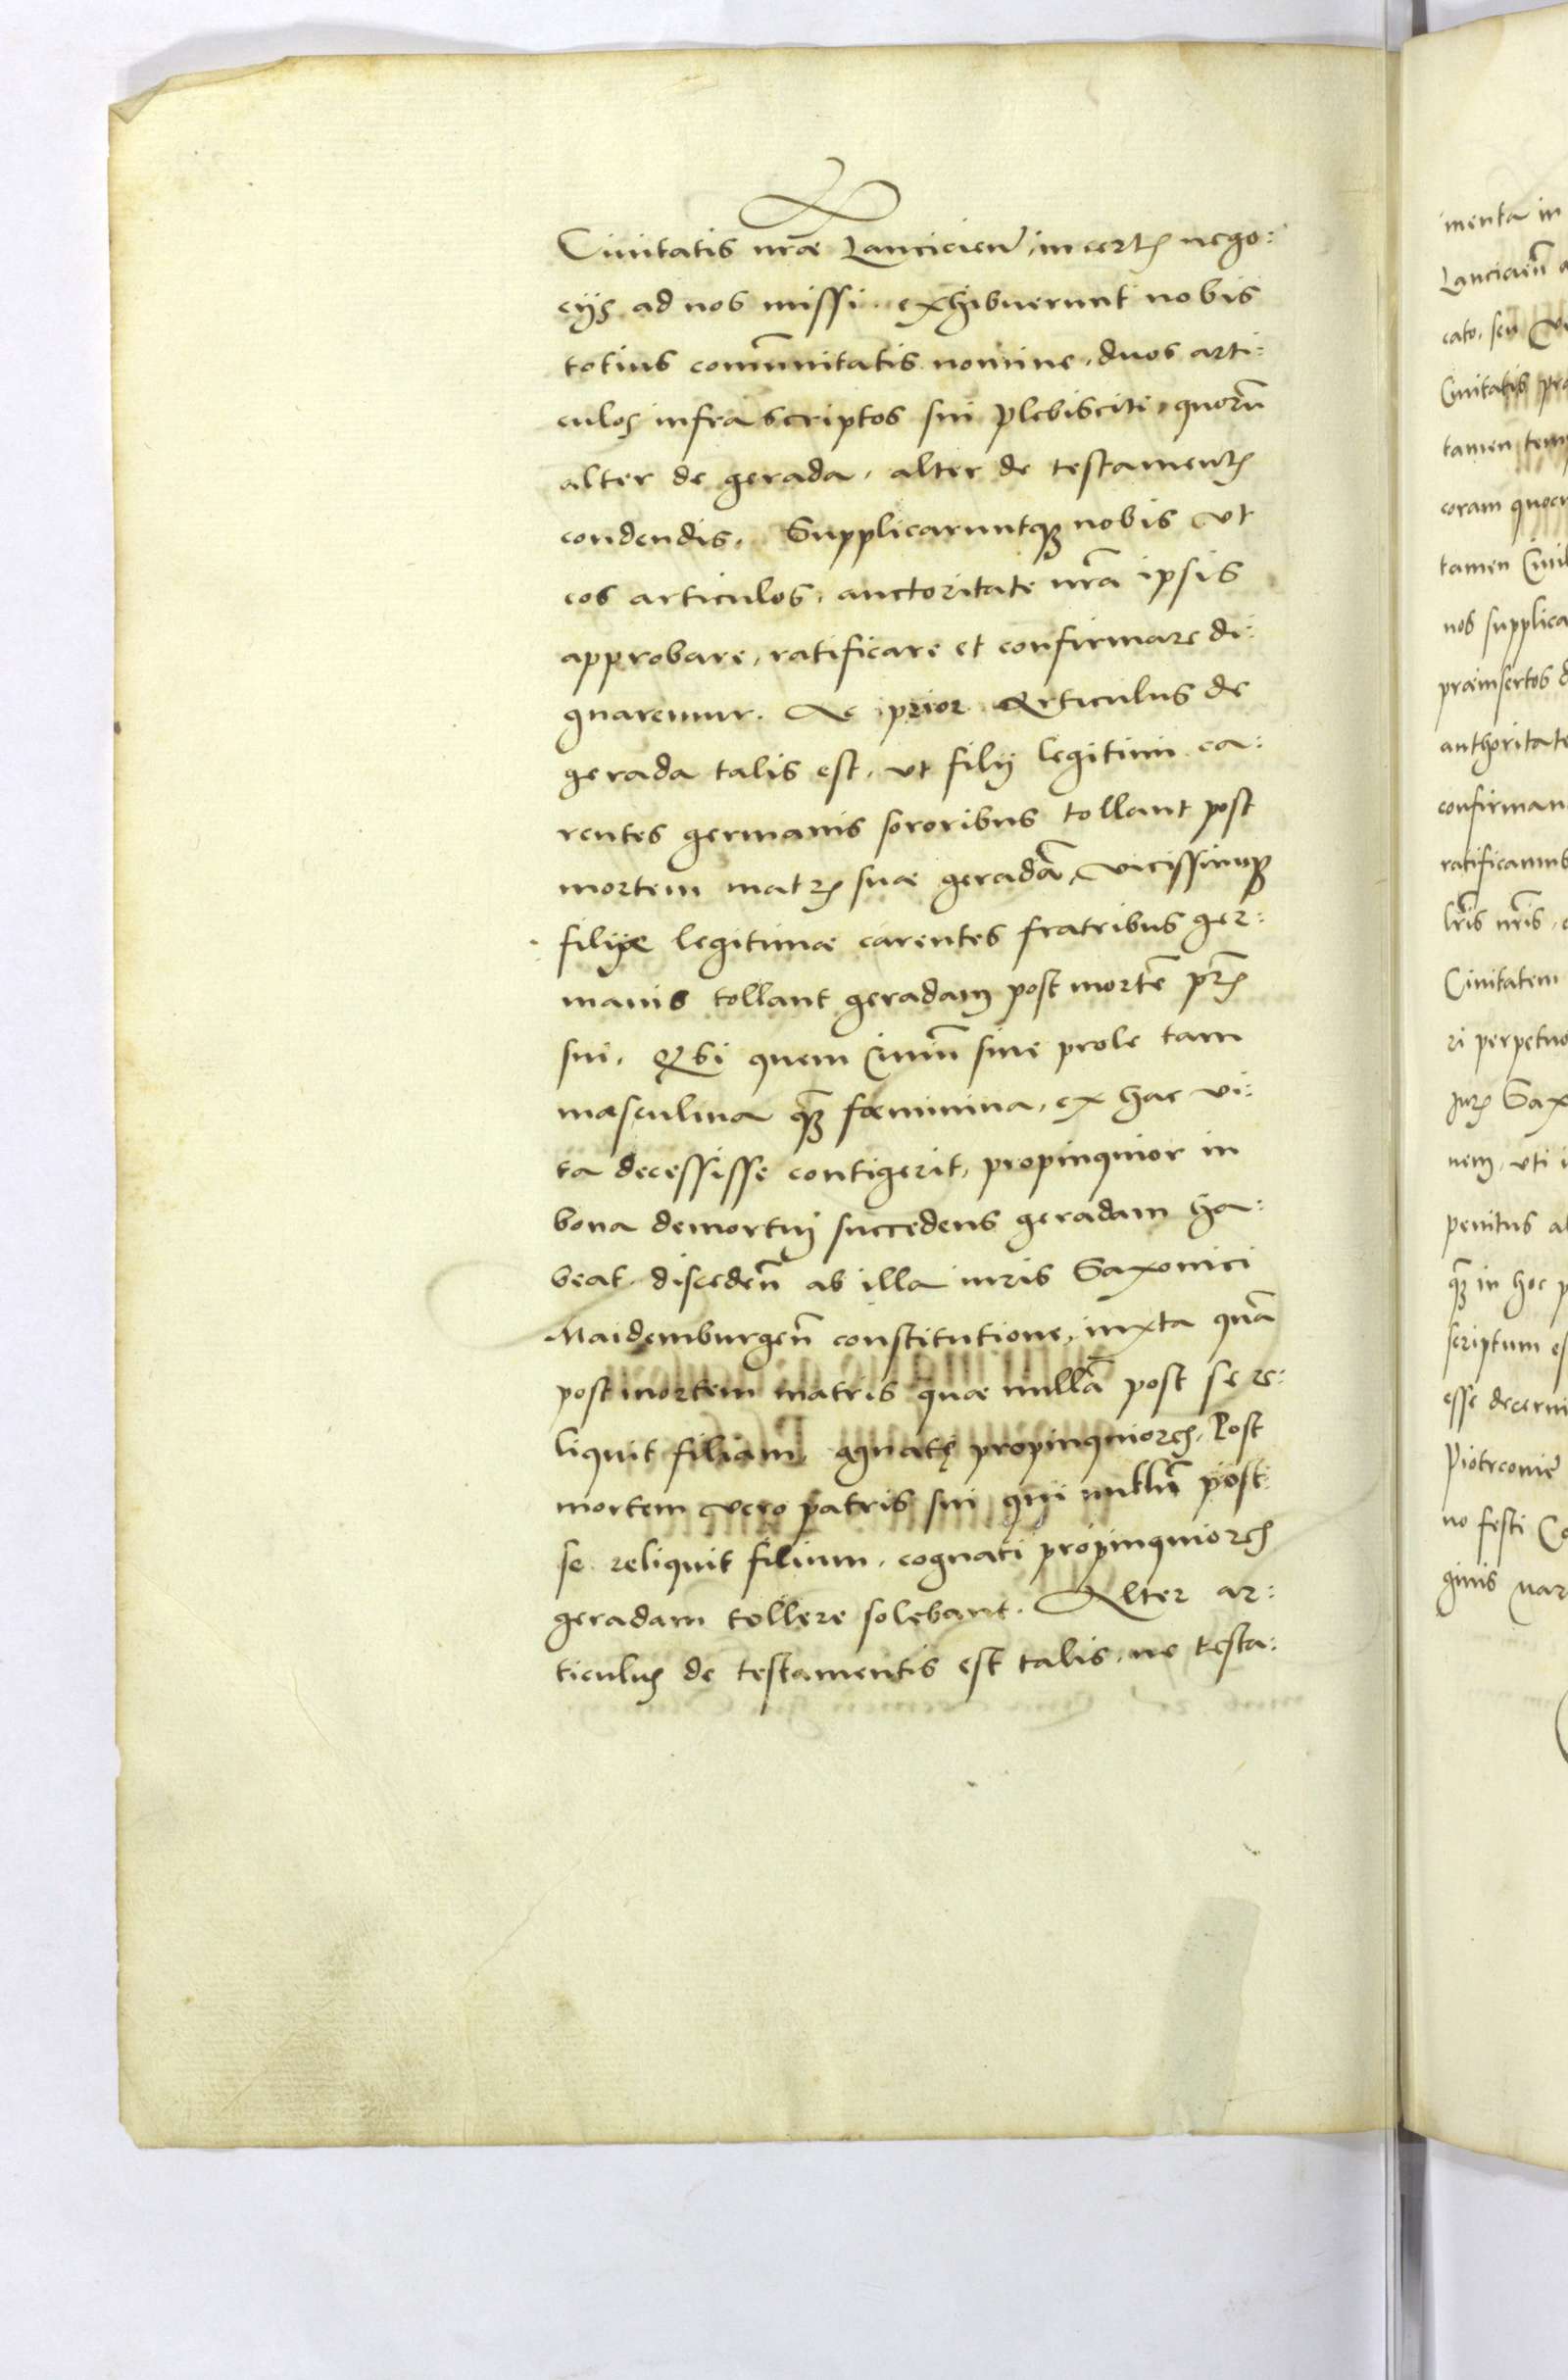 Ciuitatis nrae Lancicień, in certꝭ nego:
cijs ad nos missi. exhibuerunt nobis
totius com̄unitatis nomine, duos arti:
culos infra scriptos sui plebisciti, quorū
alter de gerada, alter de testamentꝭ
condendis. Supplicaruntqꝫ nobis vt
eos articulos, auctoritate nr̄a ipsis
approbare, ratificare et confirmare di:
gnaremur. Ac prior Articulus de
gerada talis est, vt filij legitimi ca:
rentes germanis sororibus tollant post
mortem matrꝭ suae geradā, vicissimqꝫ
filiȷae legitimae carentes fratribus ger:
manis tollant geradam post mortē pr̄ꝭ
sui. At si quem Ciuiū sine prole tam
masculina qꝫ foeminina, ex hac vi:
ta decessisse contigerit, propinquior in
bona demortui succedens geradam ha:
beat. discedeñ ab illa iuris Saxonici
Maidemburgeñ constitutione, iuxta quā
post mortem matris quae nullā post se re:
liquit filiam, agnatę propinquiorꝭ. Post
mortem vero patris sui qui nullū post
se reliquit filium, cognati propinquiorꝭ
geradam tollere solebant. Alter ar:
ticulus de testamentis est talis, ne testa:
menta in
Lancicień
cato, seu
Ciuitatis
tamen
coram
tamen
nos supplica
praeinsertos
authoritate
confirman
ratificamus
lr̄is nr̄is,
Ciuitatem
ri perpetuo
Jurꝭ Sax
nem, vti
penitus
qꝫ in hoc
scriptum
esse decerni
Piotrcouie
no festi
ginis